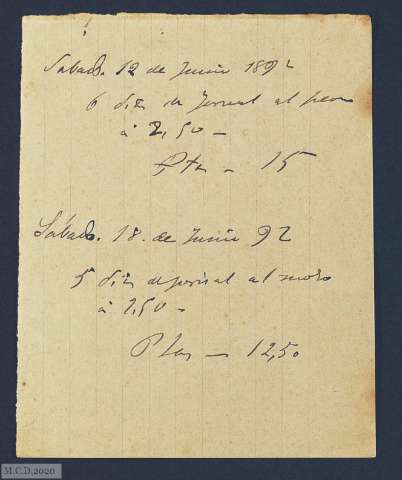 Sabado. 12 de Junio 1892
6 dias de Jornal al peon
à 2,50 -
Ptas - 15
Sábado. 18. de Junio 92
5 dias de jornal al mozo
à 2,50 -
Ptas - 12,50
M.C.D.2020